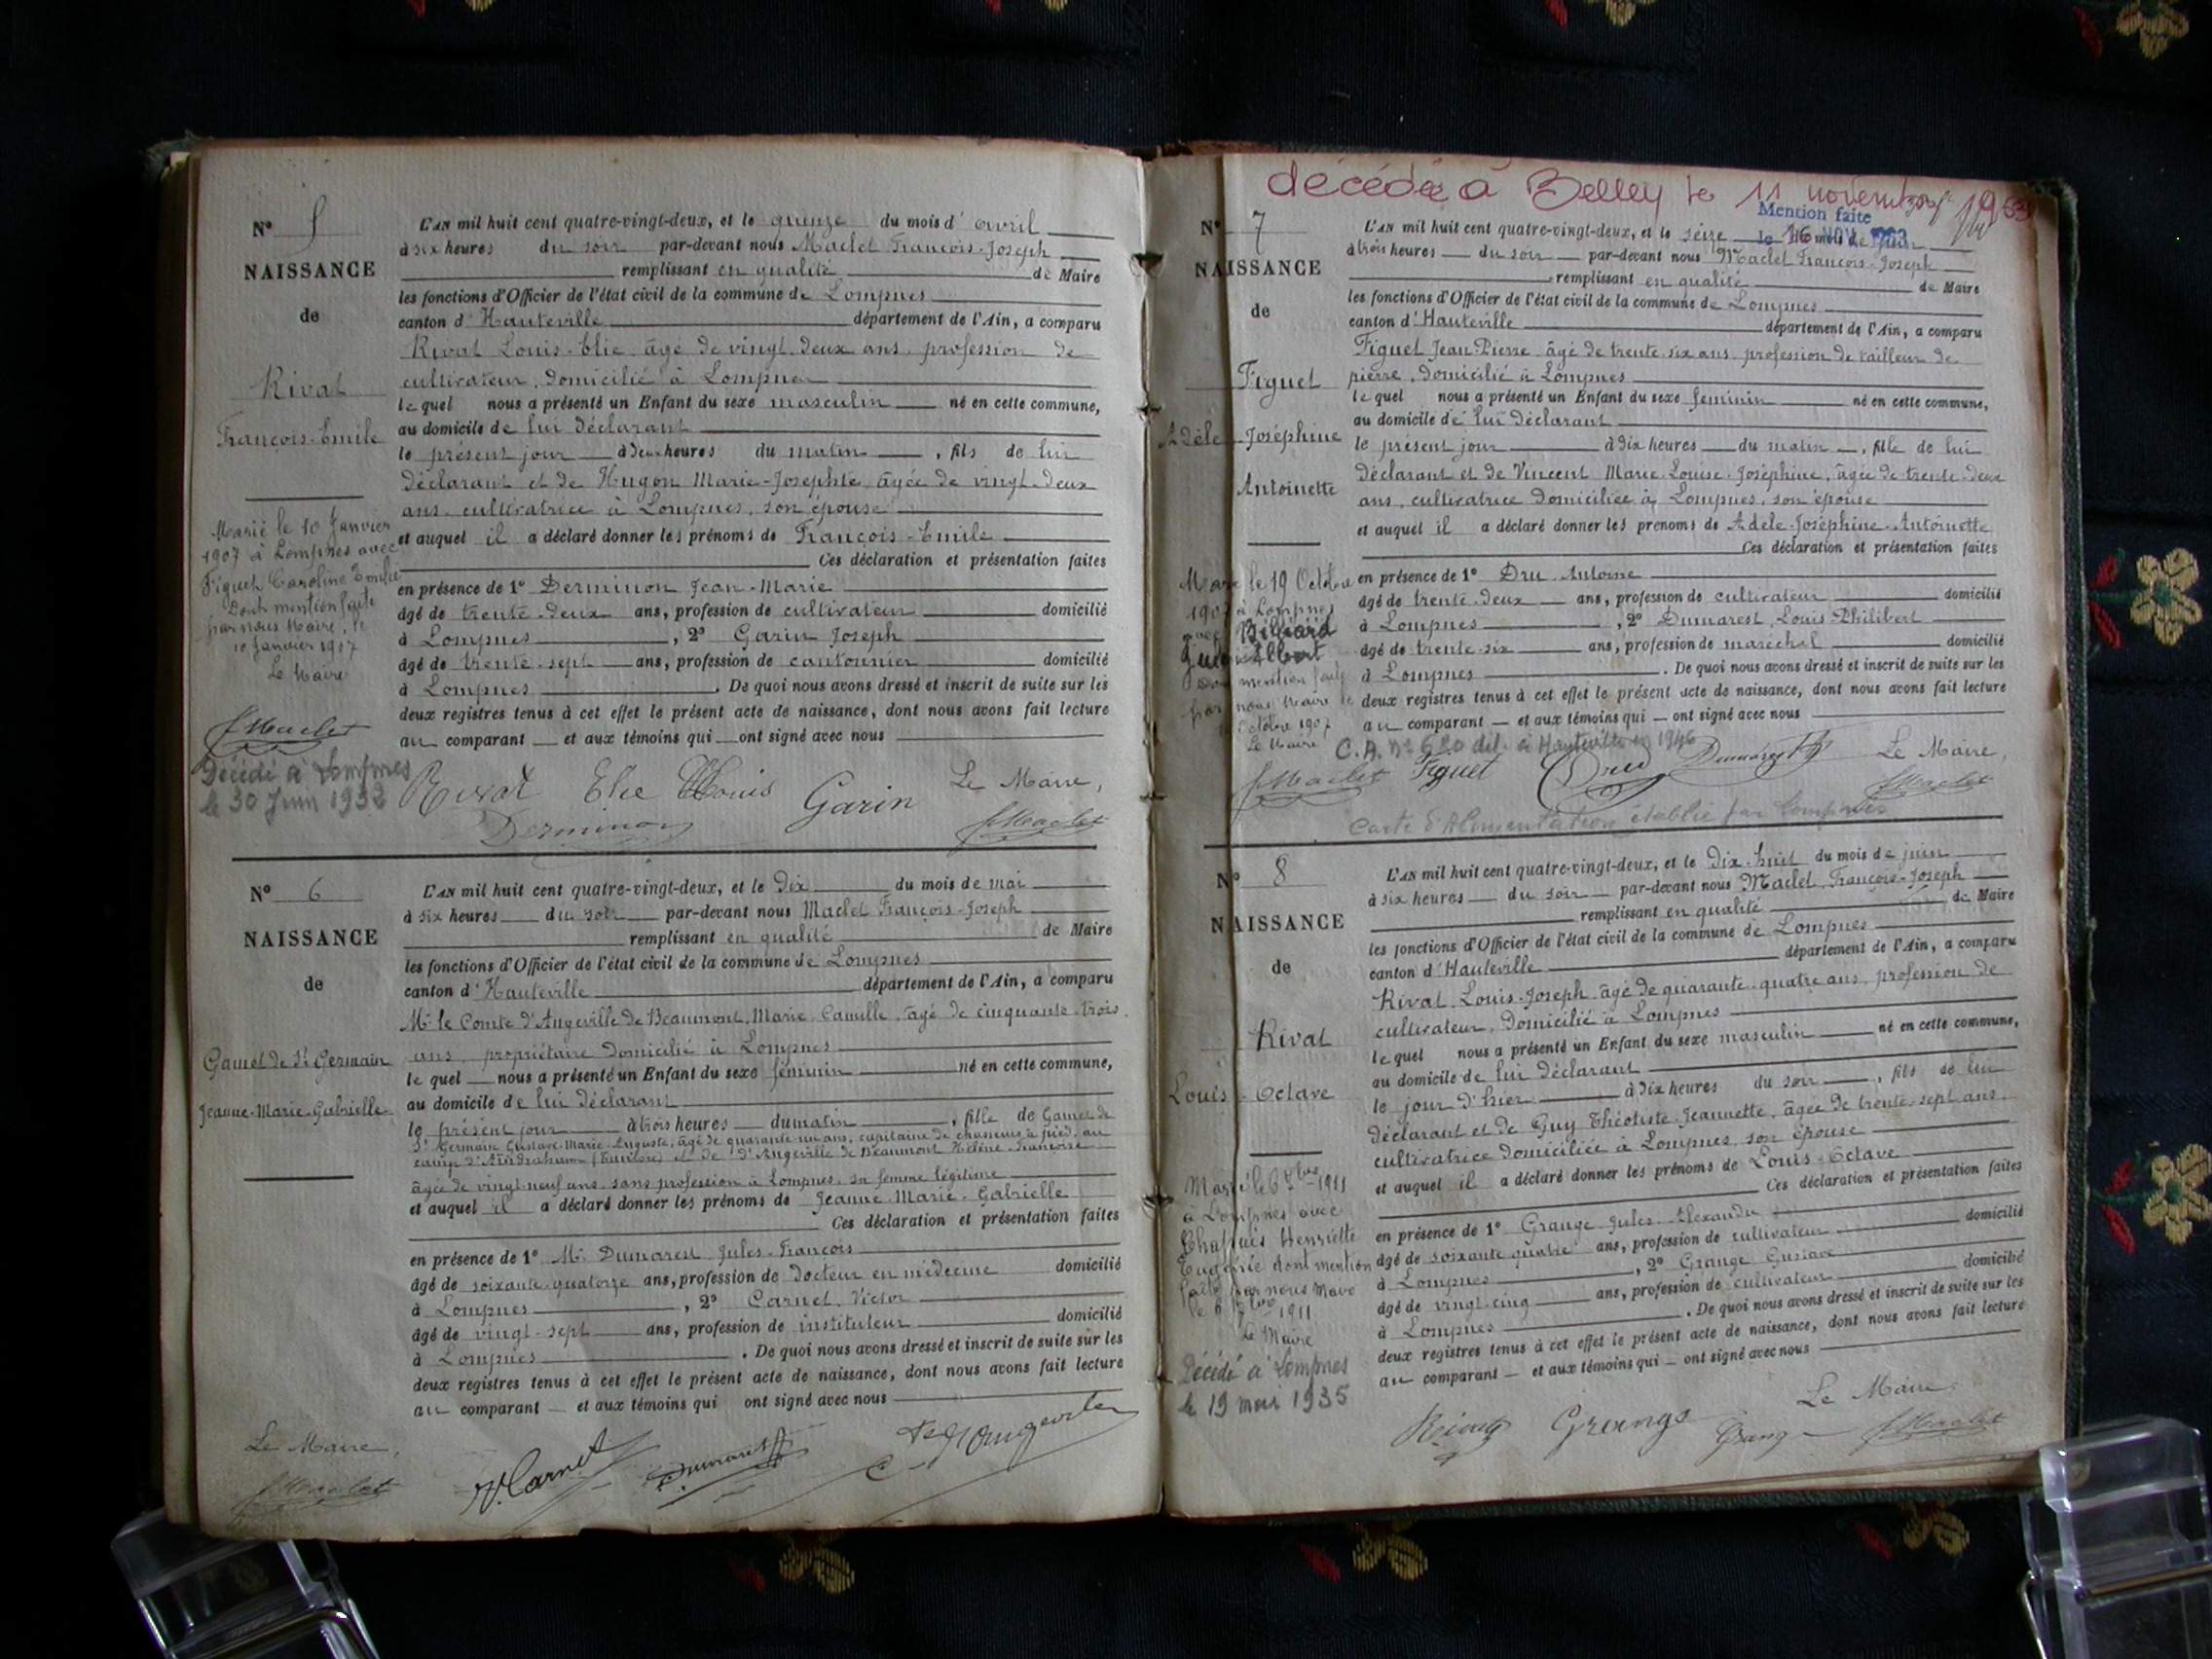 N° 5
NAISSANCE
de
Rival
François-Emile
Marié le 10 Janvier
1907 à Lompnes avec
Figuet Caroline Emilie
Dont mention faite
par nous Maire, le
10 Janvier 1907
Le Maire
f Maclet
Décédé à Lompnes
le 30 Juin 1933
L'AN mil huit cent quatre-vingt-deux, et le quinze du mois d'avril
à six heures du soir par-devant nous Maclet François-Joseph
remplissant en qualité de Maire
les fonctions d'Officier de l'état civil de la commune de Lompnes
canton d'Hauteville département de l'Ain, a comparu
Rival Louis-Elie âgé de vingt-deux ans, profession de
cultivateur, domicilié à Lompnes
lequel nous a présenté un Enfant du sexe masculin né en cette commune,
au domicile de lui déclarant
le présent jour à deux heures du matin, fils de lui
déclarant et de Hugon Marie-Josephte âgée de vingt-deux
ans, cultivatrice à Lompnes, son épouse
et auquel il a déclaré donner les prénoms de François-Emile
Ces déclaration et présentation faites
en présence de 1° Derminon Jean-Marie
âgé de trente-deux ans, profession de cultivateur domicilié
à Lompnes, 2° Garin Joseph
âgé de trente-sept ans, profession de cantonnier domicilié
à Lompnes. De quoi nous avons dressé et inscrit de suite sur les
deux registres tenus à cet effet le présent acte de naissance, dont nous avons fait lecture
au comparant et aux témoins qui ont signé avec nous
Rival Elie Louis Garin Le Maire,
Derminon f Maclet
N° 6
NAISSANCE
de
Gamet de St Germain
Jeanne-Marie-Gabrielle
L'AN mil huit cent quatre-vingt-deux, et le dix du mois de mai
à six heures du soir par-devant nous Maclet François-Joseph
remplissant en qualité de Maire
les fonctions d'Officier de l'état civil de la commune de Lompnes
canton d'Hauteville département de l'Ain, a comparu
Mr le Comte d'Angeville de Beaumont, Marie-Camille, âgé de cinquante-trois
ans, propriétaire domicilié à Lompnes
lequel nous a présenté un Enfant du sexe féminin né en cette commune,
au domicile de lui déclarant
le présent jour à trois heures du matin, fille de Gamet de
St Germain Gustave-Marie-Auguste, âgé de quarante-un ans, capitaine de chasseurs à pied, au
camp d'Aïndraham (Tunisie) et de d'Angeville de Beaumont Hélène-Françoise
âgée de vingt-neuf ans, sans profession à Lompnes, sa femme légitime
et auquel il a déclaré donner les prénoms de Jeanne-Marie-Gabrielle
Ces déclaration et présentation faites
en présence de 1° Mr Dumarest Jules-François
âgé de soixante-quatorze ans, profession de docteur en médecine domicilié
à Lompnes, 2° Carnet, Victor
âgé de vingt-sept ans, profession de instituteur domicilié
à Lompnes. De quoi nous avons dressé et inscrit de suite sur les
deux registres tenus à cet effet le présent acte de naissance, dont nous avons fait lecture
au comparant et aux témoins qui ont signé avec nous
Le Maire,
f Maclet V. Carnet Dumarest Cte d'Angeville
décédée à Belley le 11 novembre 1963
Mention faite
le 16 NOV. 1963
N° 7
NAISSANCE
de
Figuet
Adèle-Joséphine
Antoinette
Marié le 19 Octobre
1907 à Lompnes
avec Billiard
Albert
Dont mention faite
par nous Maire le
Octobre 1907
Le Maire
f Maclet
L'AN mil huit cent quatre-vingt-deux, et le seize du mois de juin
à trois heures du soir par-devant nous Maclet François-Joseph
remplissant en qualité de Maire
les fonctions d'Officier de l'état civil de la commune de Lompnes
canton d'Hauteville département de l'Ain, a comparu
Figuet Jean-Pierre âgé de trente-six ans, profession de tailleur de
pierre, domicilié à Lompnes
lequel nous a présenté un Enfant du sexe féminin né en cette commune,
au domicile de lui déclarant
le présent jour à dix heures du matin, fille de lui
déclarant et de Vincent Marie-Louise-Joséphine, âgée de trente-deux
ans, cultivatrice domiciliée à Lompnes, son épouse
et auquel il a déclaré donner les prénoms de Adèle-Joséphine-Antoinette
Ces déclaration et présentation faites
en présence de 1° Dru Antoine
âgé de trente-deux ans, profession de cultivateur domicilié
à Lompnes, 2° Dumarest, Louis Philibert
âgé de trente-six ans, profession de maréchal domicilié
à Lompnes. De quoi nous avons dressé et inscrit de suite sur les
deux registres tenus à cet effet le présent acte de naissance, dont nous avons fait lecture
au comparant et aux témoins qui ont signé avec nous
C.A. N° 620 dél. à Hauteville en 1946
Figuet Dru Dumarest Le Maire,
f Maclet
Carte d'Alimentation établie par Lompnes
N° 8
NAISSANCE
de
Rival
Louis-Octave
Marié le 6 1911
à Lompnes avec
Chappuis Henriette
Eugénie dont mention
faite par nous Maire
le 6 1911
Le Maire
Décédé à Lompnes
le 19 mai 1935
L'AN mil huit cent quatre-vingt-deux, et le dix-huit du mois de juin
à six heures du soir par-devant nous Maclet François-Joseph
remplissant en qualité de Maire
les fonctions d'Officier de l'état civil de la commune de Lompnes
canton d'Hauteville département de l'Ain, a comparu
Rival Louis-Joseph âgé de quarante-quatre ans, profession de
cultivateur, domicilié à Lompnes
lequel nous a présenté un Enfant du sexe masculin né en cette commune,
au domicile de lui déclarant
le jour d'hier à dix heures du soir, fils de lui
déclarant et de Guy Théotiste-Jeannette, âgée de trente-sept ans,
cultivatrice domiciliée à Lompnes, son épouse
et auquel il a déclaré donner les prénoms de Louis-Octave
Ces déclaration et présentation faites
en présence de 1° Grange Jules-Alexandre
âgé de soixante-quatre ans, profession de cultivateur domicilié
à Lompnes, 2° Grange Gustave
âgé de vingt-cinq ans, profession de cultivateur domicilié
à Lompnes. De quoi nous avons dressé et inscrit de suite sur les
deux registres tenus à cet effet le présent acte de naissance, dont nous avons fait lecture
au comparant et aux témoins qui ont signé avec nous
Le Maire
Rival Grange Grange f Maclet